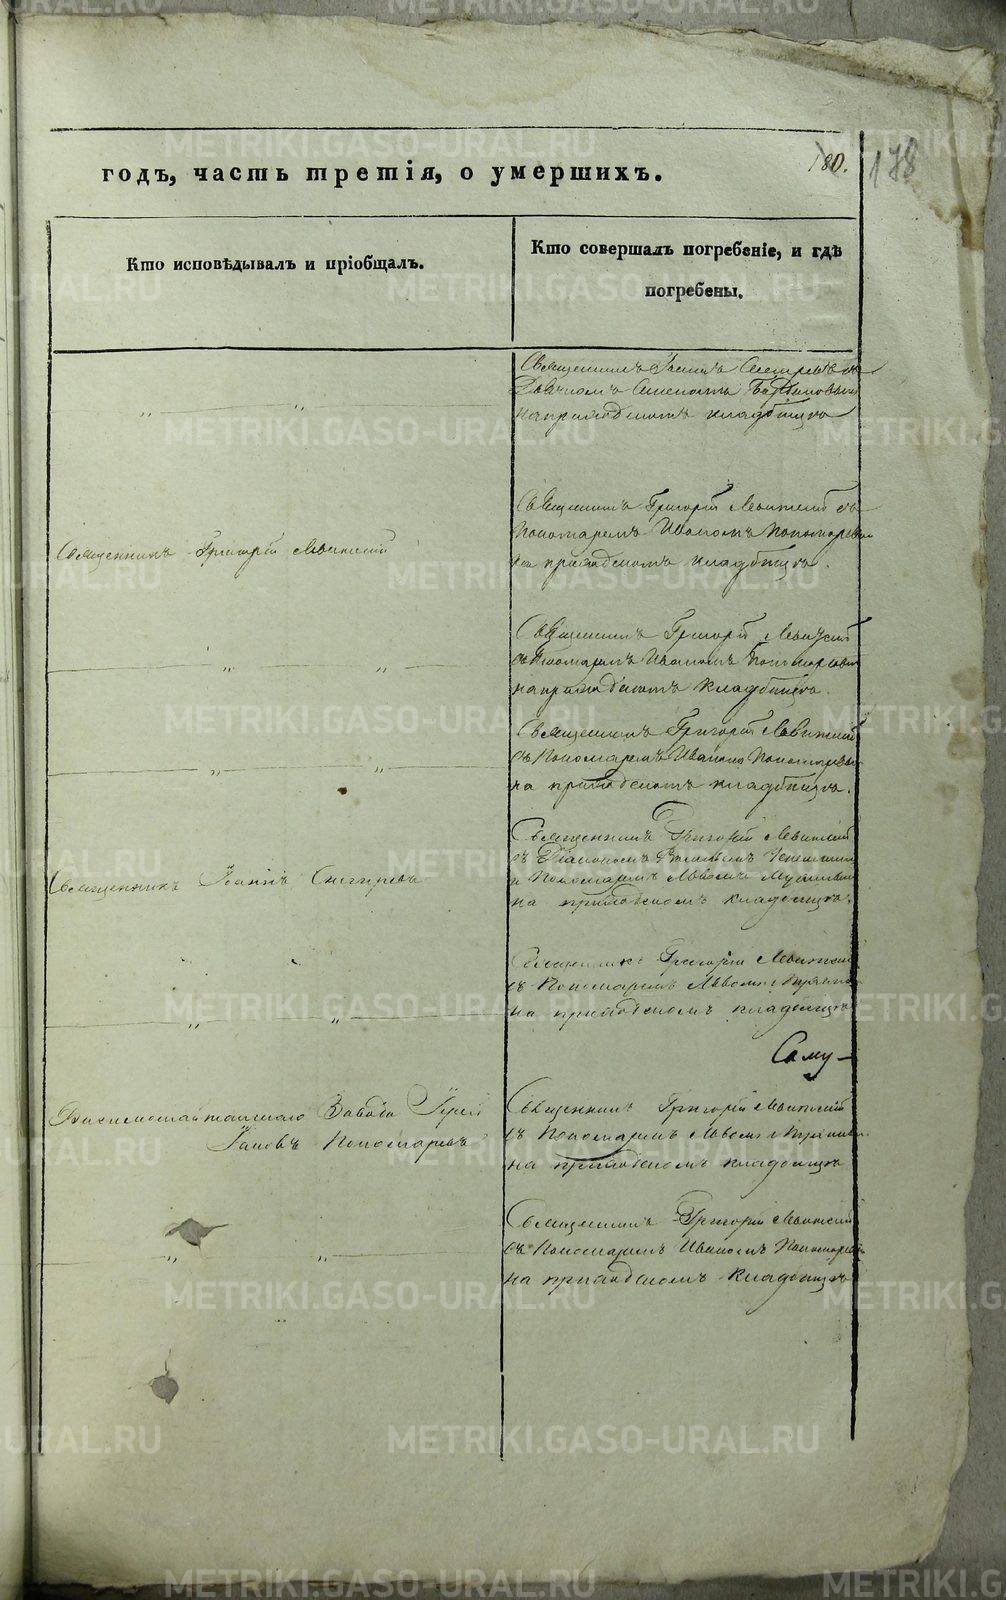 180. 178
годъ, часть третія, о умершихъ.
Кто исповѣдывалъ и пріобщалъ.
Кто совершалъ погребеніе, и гдѣ
погребены.
Священникъ Іоаннъ
на приходскомъ кладбищѣ
Священникъ Григорій Левитскій съ
Пономаремъ Иваномъ Пономаревым
на приходскомъ кладбищѣ.
Священникъ Григорій Левитскій
Священникъ Григорій Левитскій
съ Пономаремъ Иваномъ Пономаревым
на приходскомъ кладбищѣ.
Священникъ Григорій Левитскій
съ Пономаремъ Иваномъ Пономаревым
на приходскомъ кладбищѣ.
Священникъ Григорій Левитскій
съ Діакономъ
и Пономаремъ Львомъ
на приходскомъ кладбищѣ.
Священникъ Іоаннъ Снигиревъ
Священникъ Григорій Левитскій
съ Пономаремъ Львомъ
на приходскомъ кладбищѣ
Сему
Завода Іерей
Іаковъ Пономаревъ
Священникъ Григорій Левитскій
съ Пономаремъ Львомъ
на приходскомъ кладбищѣ
Священникъ Григорій Левитскій
съ Пономаремъ Иваномъ Пономарев
на приходскомъ кладбищѣ
METRIKI.GASO-URAL.RU